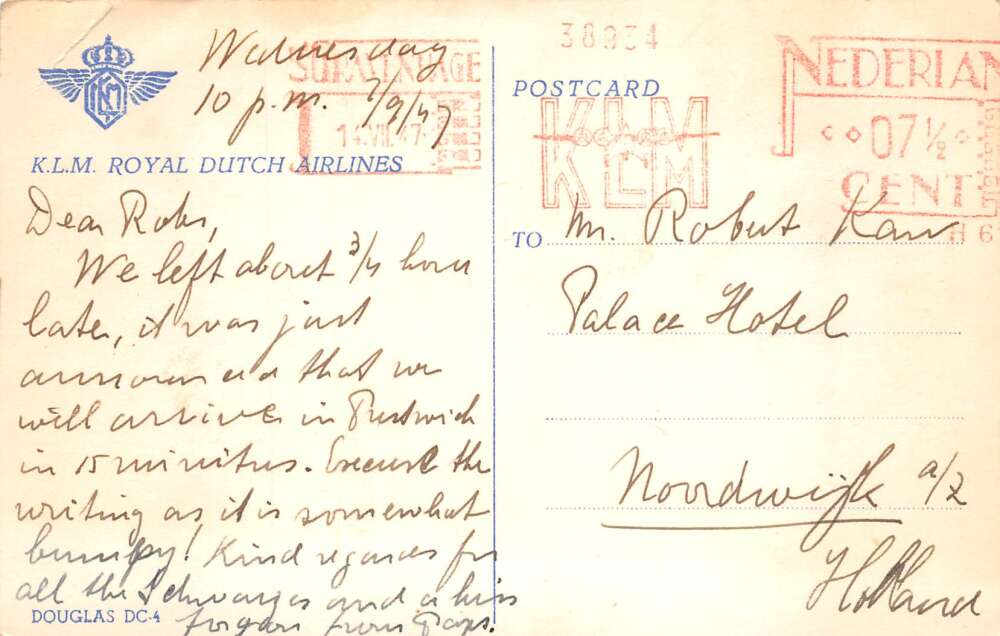 Wednesday
10 p.m. 7/9/47
K.L.M. ROYAL DUTCH AIRLINES
Dear Robs,
We left about 3/4 hour
late, it was just
announced that we
will arrive in Prestwich
in 15 minutes. Excuse the
writing as it is somewhat
bumpy! Kind regards for
all the Schwarzes and a kiss
for you from Paps.
DOUGLAS DC-4
38934
POSTCARD
KLM
NEDERLAN
07 1/2
CENT
H 6
TO Mr. Robert
Palace Hotel
Noordwijk a/Z
Holland